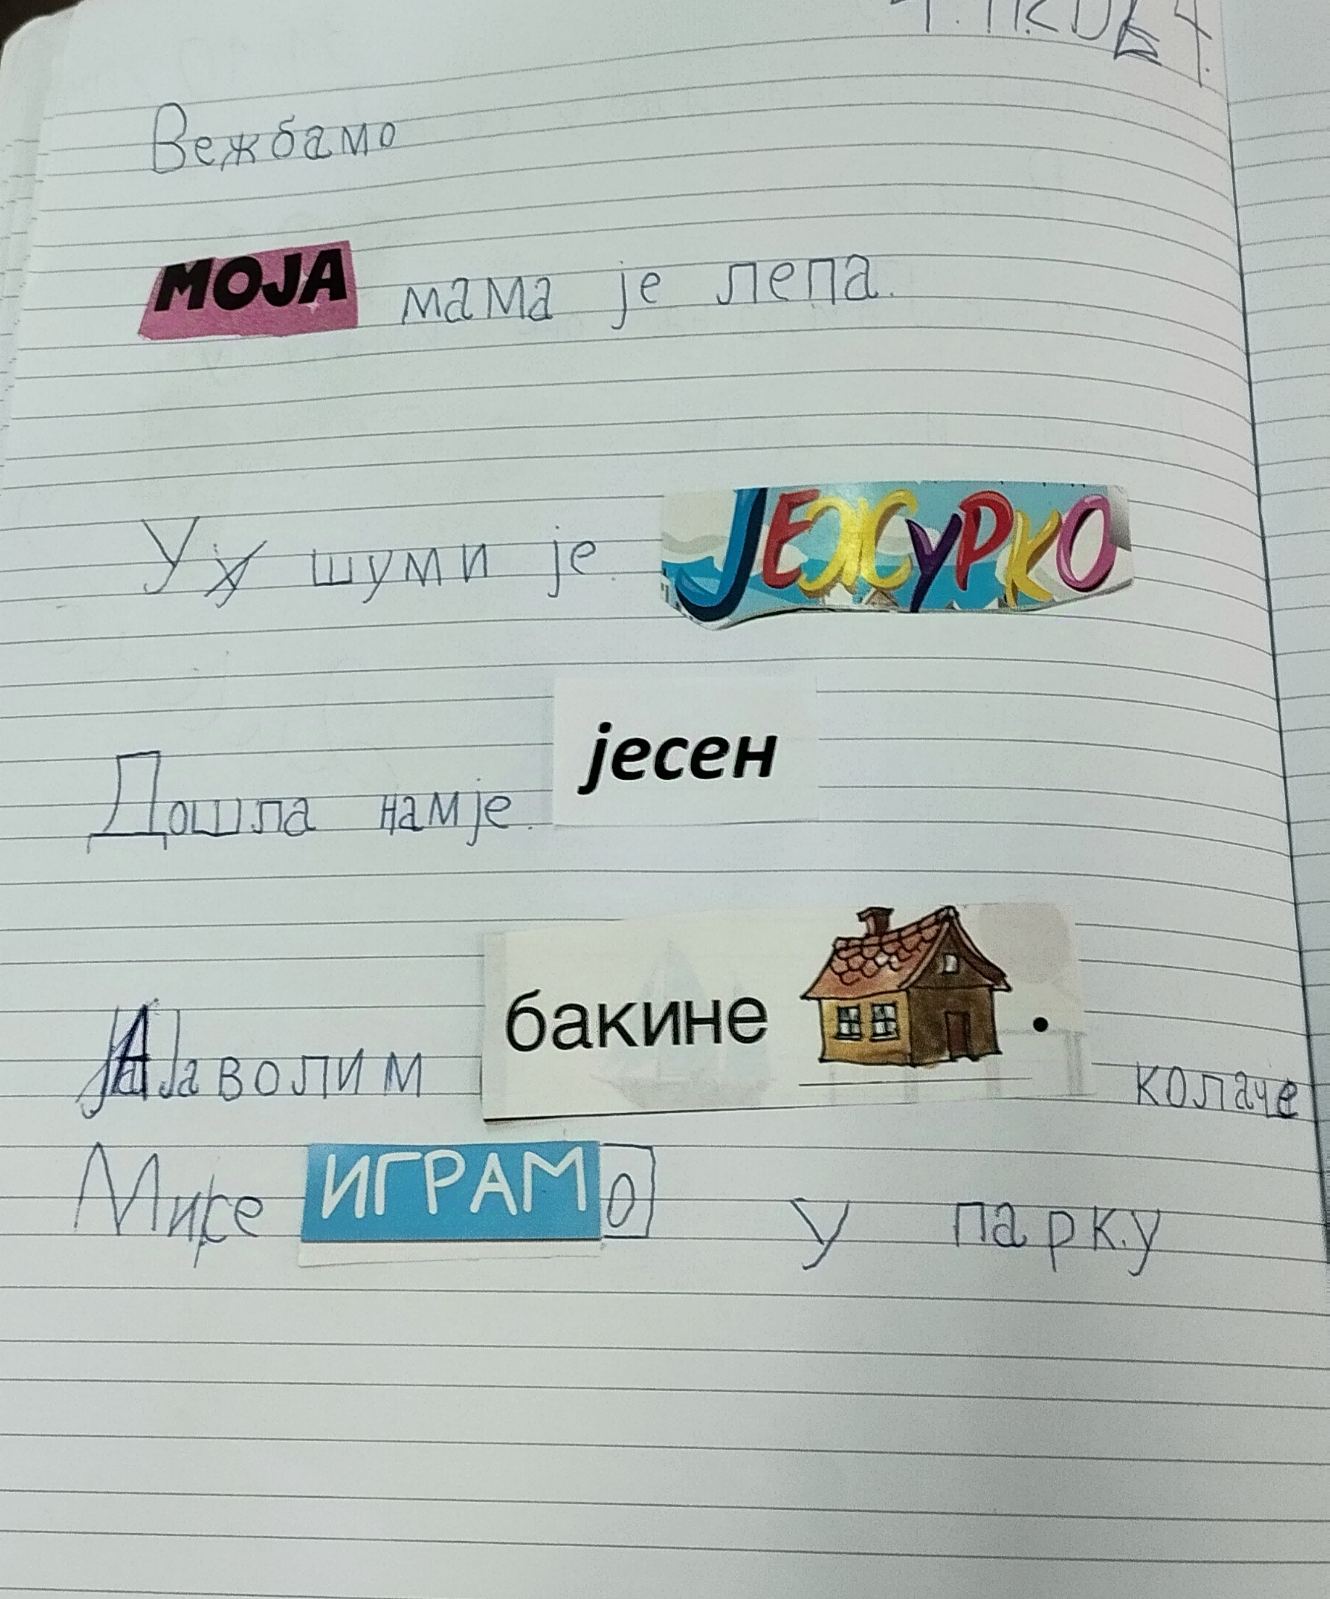 Вежбамо
МОЈА мама је лепа.
У шуми је. ЈЕЖУРКО
Дошла нам је. јесен
Ја волим бакине . колаче
Ми се ИГРАМО у парку